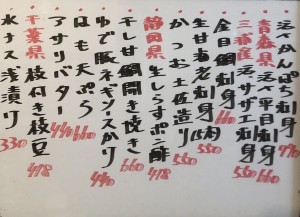 活〆かんぱち刺身 970
青森県 活〆平目刺身 660
三浦産 活サザエ刺身 560
金目鯛刺身 660
生甘海老刺身 (5本) 550
かつお土佐造り 550
静岡県 生しらすポン酢 418
干し甘鯛開き焼き 660
ゆで豚ネギソースかけ 490
はも天ぷら
アサリバター 440
千葉県 枝付き枝豆 418
水ナス浅漬け 330